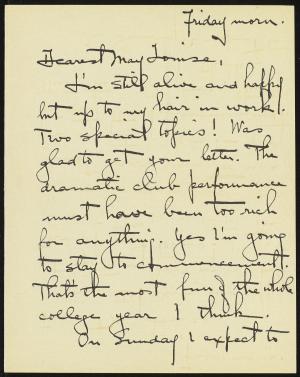 Friday morn.
Dearest May Louise,
I'm still alive and happy
but up to my hair in work.
Two special topics! Was
glad to get your letter. The
dramatic club performance
must have been too rich
for anything. Yes I'm going
to stay to commencement.
That's the most fun of the whole
college year I think.
On Sunday I expect to